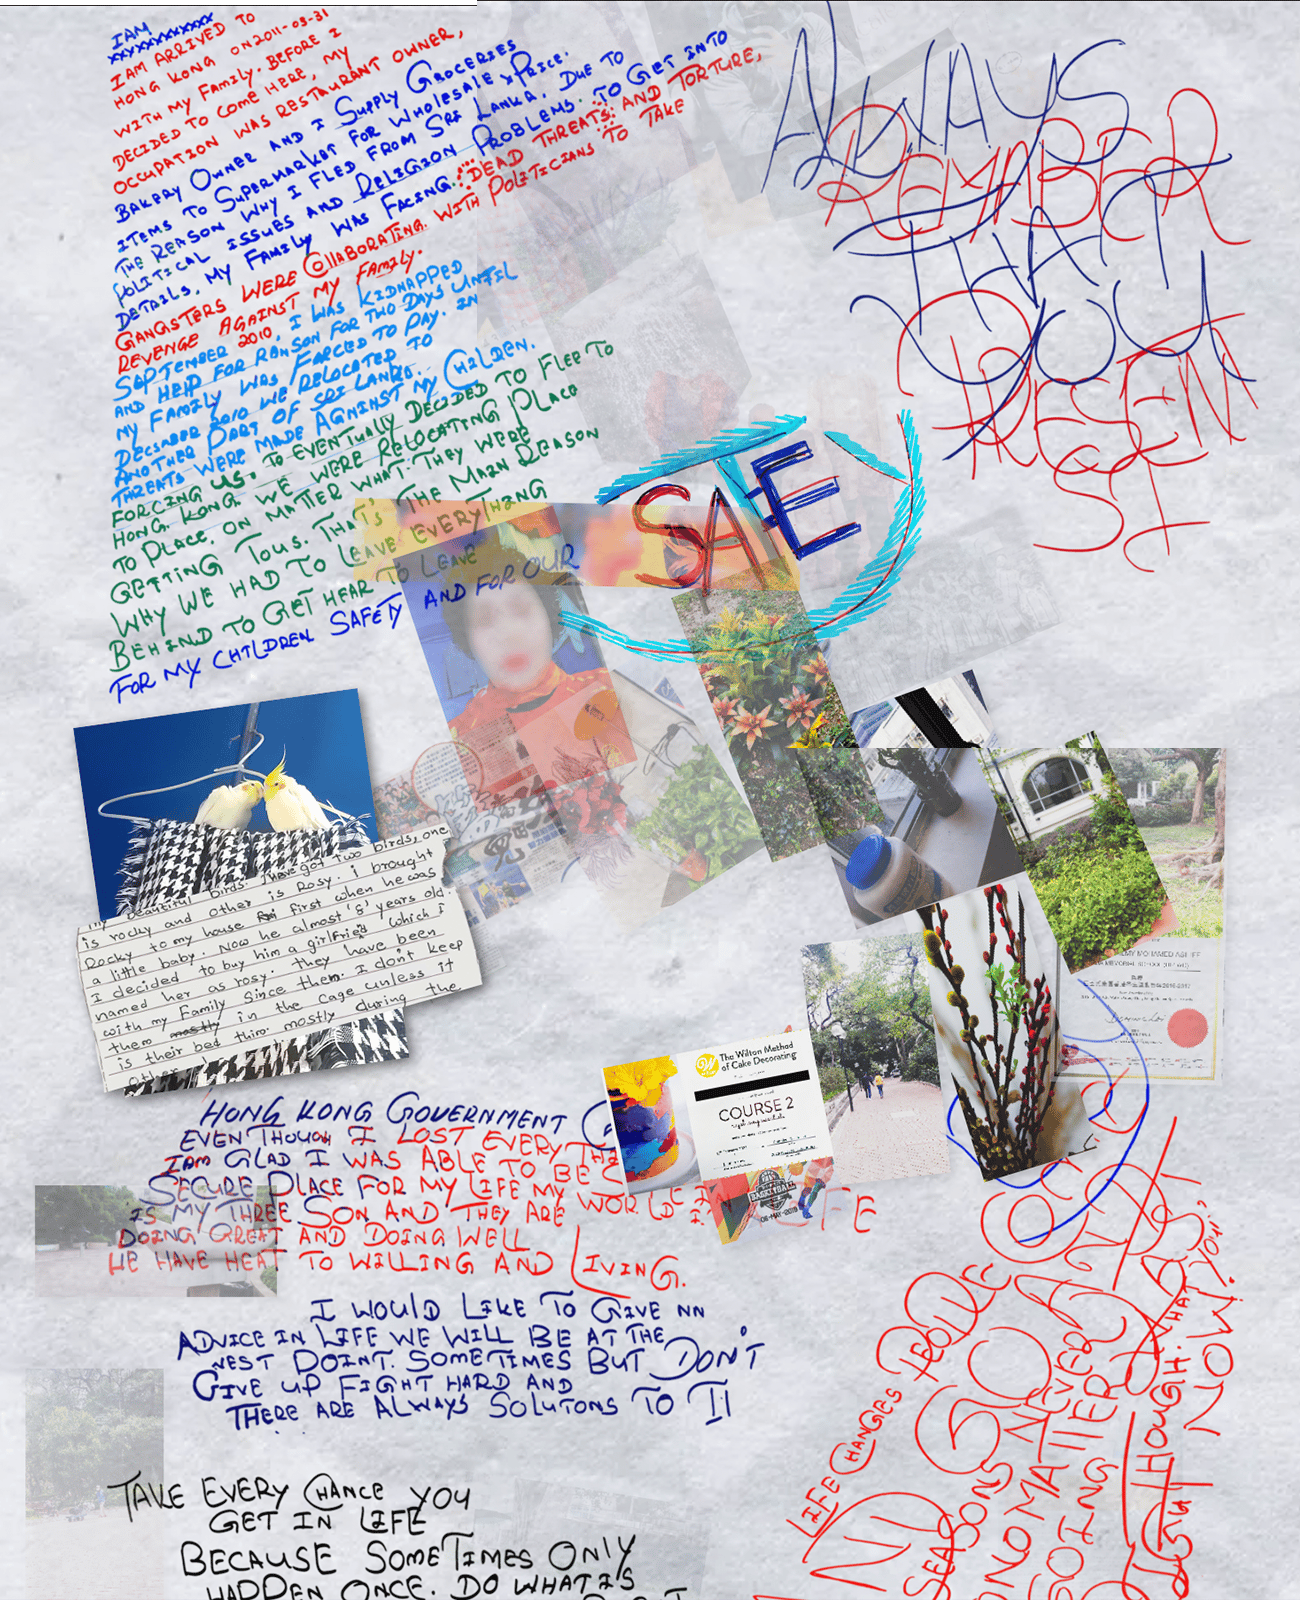 IAM
XXYXXXXXXXXXX
IAM ARRIVED TO
HONG KONG ON 2011-03-31
WITH MY FAMILY. BEFORE I
DECIDED TO COME HERE, MY
OCCUPATION WAS RESTAURANT OWNER,
BAKERY OWNER AND I SUPPLY GROCERIES
ITEMS TO SUPERMARKET FOR WHOLESALE PRICE.
THE REASON WHY I FLED FROM SRI LANKA. DUE TO
POLITICAL ISSUES AND RELIGION PROBLEMS. TO GET INTO
DETAILS, MY FAMILY WAS FACING. DEAD THREATS: AND TORTURE,
GANGSTERS WERE COllABORATING. WITH POLITICIANS TO TAKE
REVENGE AGAINST MY FAMILY.
SEPTEMBER 2010, I WAS KIDNAPPED
AND HELD FOR RANSON FOR TWO DAYS UNTIL
MY FAMILY WAS FORCED TO PAY. IN
DECSNBER 2010 WE RELOCATED TO
ANOTHER PART OF SRI LANKA.
THREATS WERE MADE AGAINST MY CHILDEN.
FORCING US. TO EVENTUALLY DECIDED TO FLEE TO
HONG KONG. WE WERE RELOCATING PLACE
TO PLACE, ON MATTER WHAT. THEY WERE
GETTING TOUS. THAT'S THE MAIN REASON
WHY WE HAD TO LEAVE EVERYTHING
BEHIND TO GET HEAR TO LEAVE
FOR MY CHILDREN SAFETY AND FOR OUR
SAFE
ALWAYS
REMBER
THAT
YOU
PRESEN
SI
my beautiful birds. I have got two birds, one
is rocky and other is Rosy. i brought
Rocky to my house first when he was
a little baby. Now he almost '8' years old.
I decided to buy him a girlfried which i
named her as rosy. they have been
with my Family Since them. I don't keep
them mostly in the cage unless it
is their bed thim. mostly during the
other
The Wilton Method
of Cake Decorating
COURSE 2
BASKETBALL
06-MAY-2019
HONG KONG GOVERNMENT
EVEN THOUGH I LOST EVERY THI
IAM GLAD I WAS ABLE TO BE
SECURE PLACE FOR MY LIFE MY WORLD IN LIFE
IS MY THREE SON AND THEY ARE
DOING GREAT AND DOING WELL
HE HAVE HEAT TO WILLING AND LIVING.
I WOULD LIKE TO GIVE NN
ADVICE IN LIFE WE WILL BE AT THE
NEST DOINT. SOMETIMES BUT DON'T
GIVE UP FIGHT HARD AND
THERE ARE ALWAYS SOLUTONS TO IT
TAKE EVERY CHANCE YOU
GET IN LIFE
BECAUSE SOMETIMES ONLY
HADDEN ONCE. DO WHAT IS
LIFE CHANGES PEOPLE
AND GO
SEASONS NEVER
NO MATTER
GOING
THOUGH. THAT YOU
NOW.